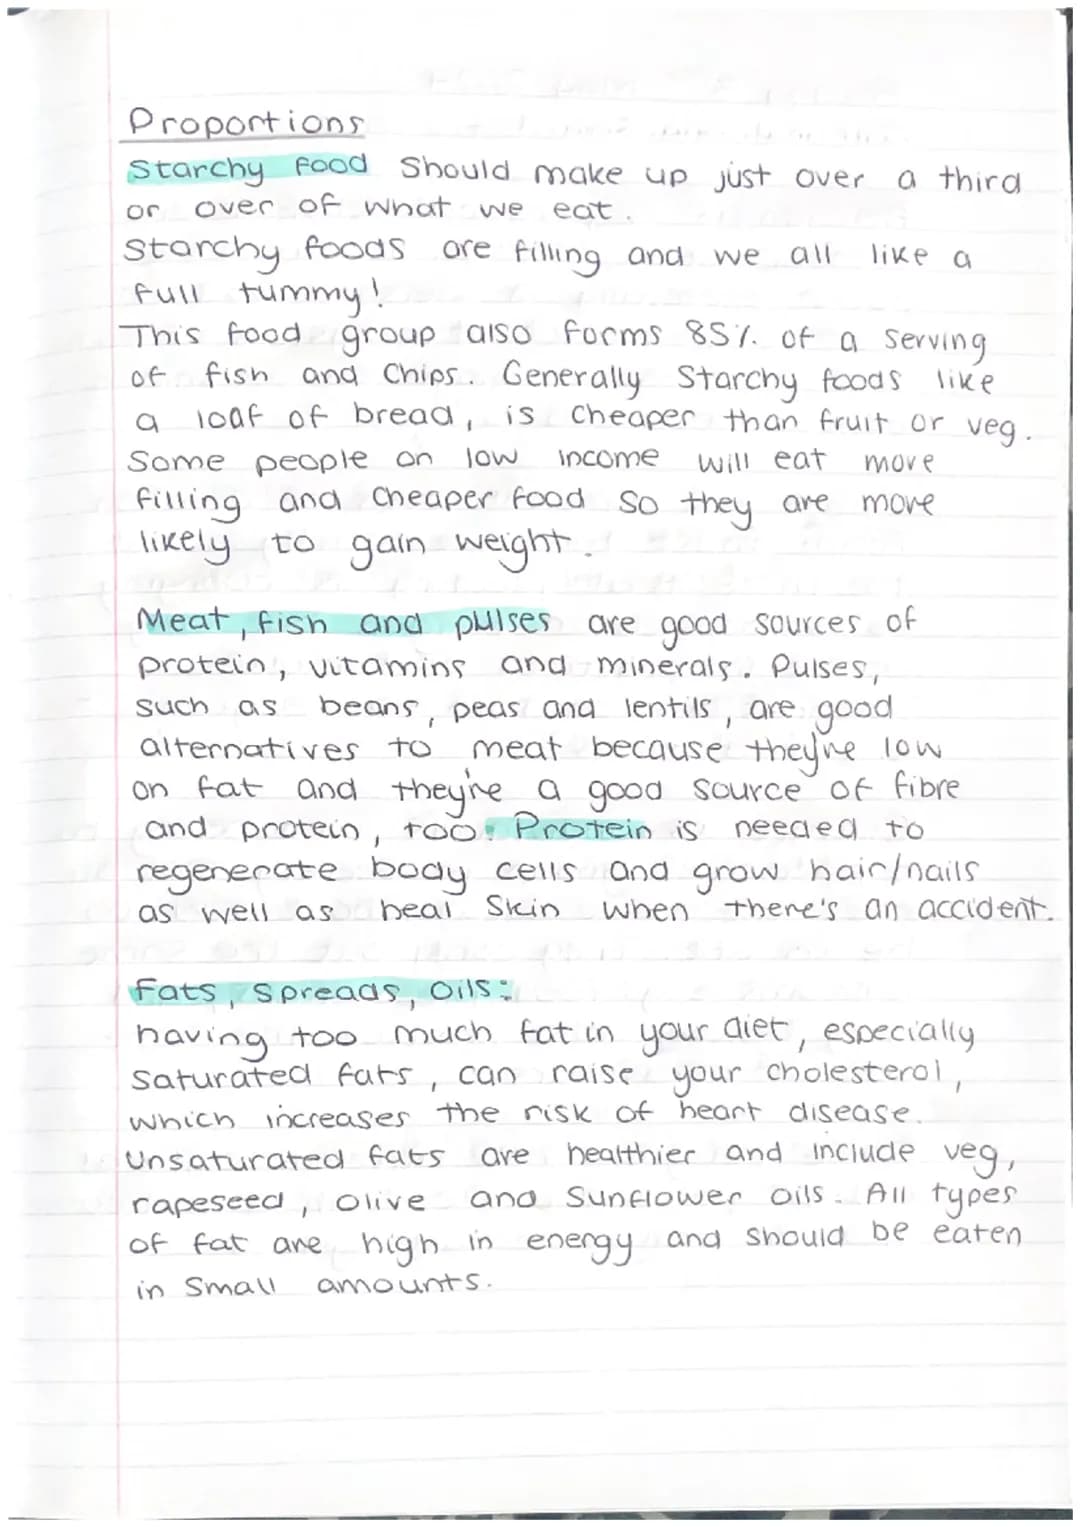 Proportions
Starchy food should make up just over a third
or over of what we eat.
Starchy foods are filling and we all like a
full tummy!
This food group also forms 85% of a serving
of fish and chips. Generally starchy foods like
a loaf of bread, is cheaper than fruit or veg.
Some people on low income will eat more
filling and cheaper food so they are more
likely to gain weight.
Meat, fish and pulses are good sources of
protein, vitamins and minerals. Pulses,
such as beans, peas and lentils, are good
alternatives to meat because they're low
on fat and they're a good source of fibre
and protein, too. Protein is needed to
regenerate body cells and grow hair/nails
as well as heal skin when there's an accident.
Fats, spreads, oils:
having too much fat in your diet, especially
saturated fats, can raise your cholesterol,
which increases the risk of heart disease.
Unsaturated fats are healthier and include veg,
rapeseed, olive and sunflower oils. All types
of fat are high in energy and should be eaten
in small amounts.